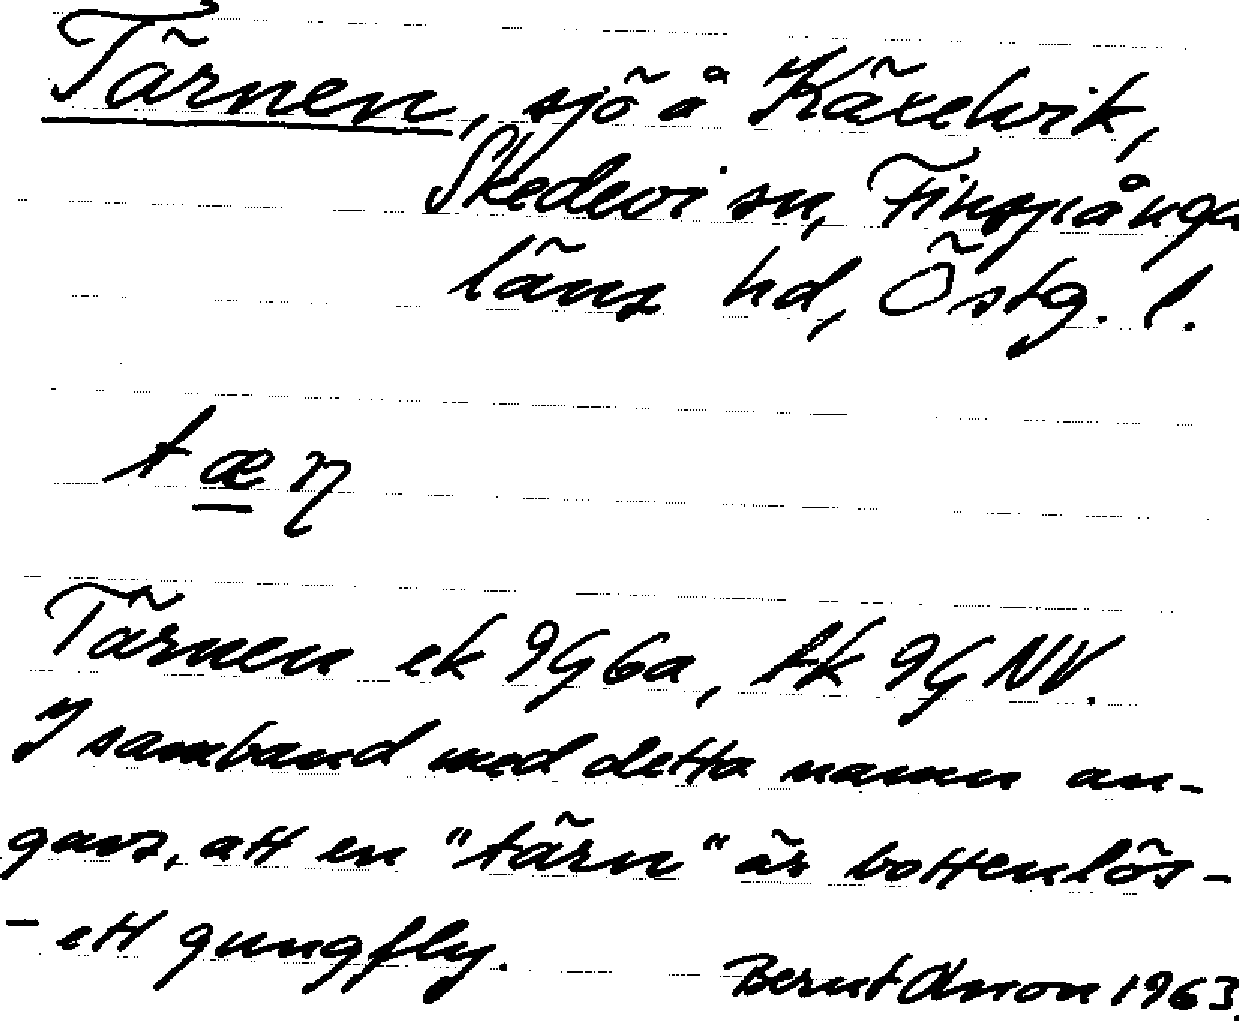 Tärnen, sjö å Käxelvik,
Skedevi sn, Finspånga
läns hd, Östg. l.
tæɳ
Tärnen ek 9G6a, tk 9G NV.
I samband med detta namn an-
gavs, att en "tärn" är bottenlös -
- ett gungfly.
Bernt Olsson 1963.